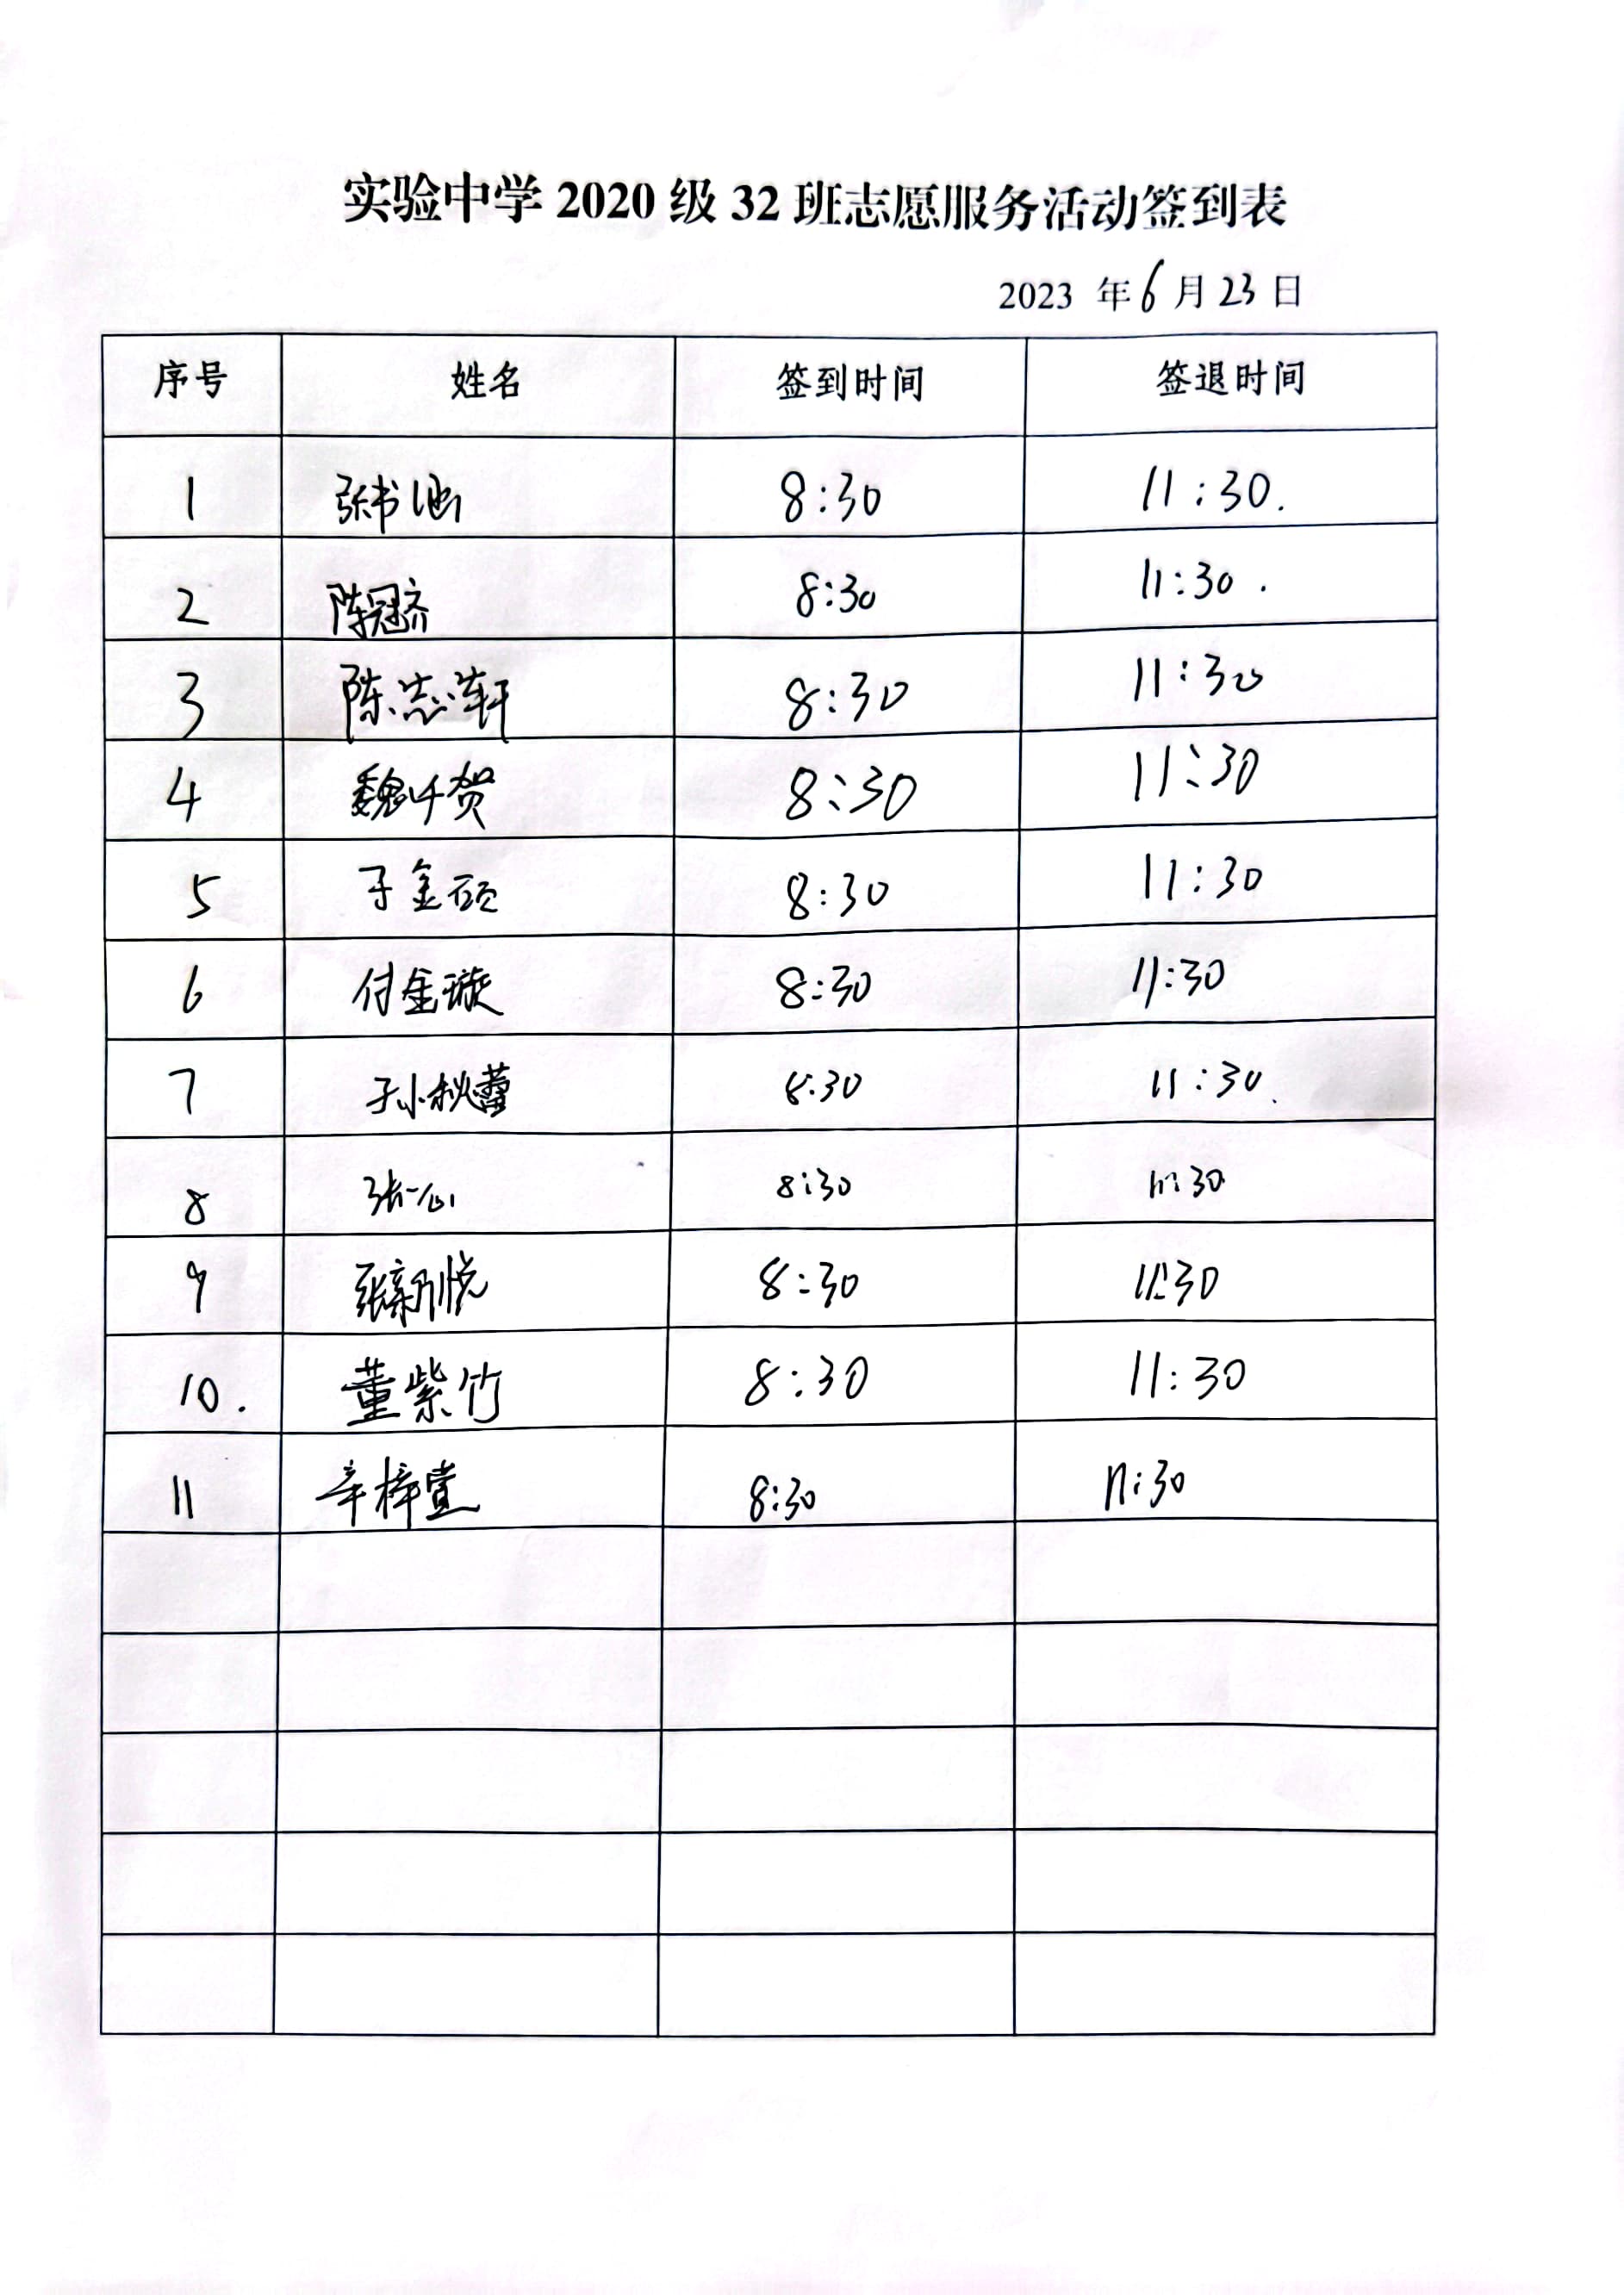 实验中学 2020 级 32 班志愿服务活动签到表
2023 年 6 月 23 日
序号 姓名 签到时间 签退时间
1 张书涵 8:30 11:30.
2 陈冠齐 8:30 11:30.
3 陈志轩 8:30 11:30
4 魏千贺 8:30 11:30
5 于金硕 8:30 11:30
6 付金璇 8:30 11:30
7 孙秋蕾 8:30 11:30.
8 张一心 8:30 11:30
9 8:30 11:30
10. 董紫竹 8:30 11:30
11 辛梓萱 8:30 11:30